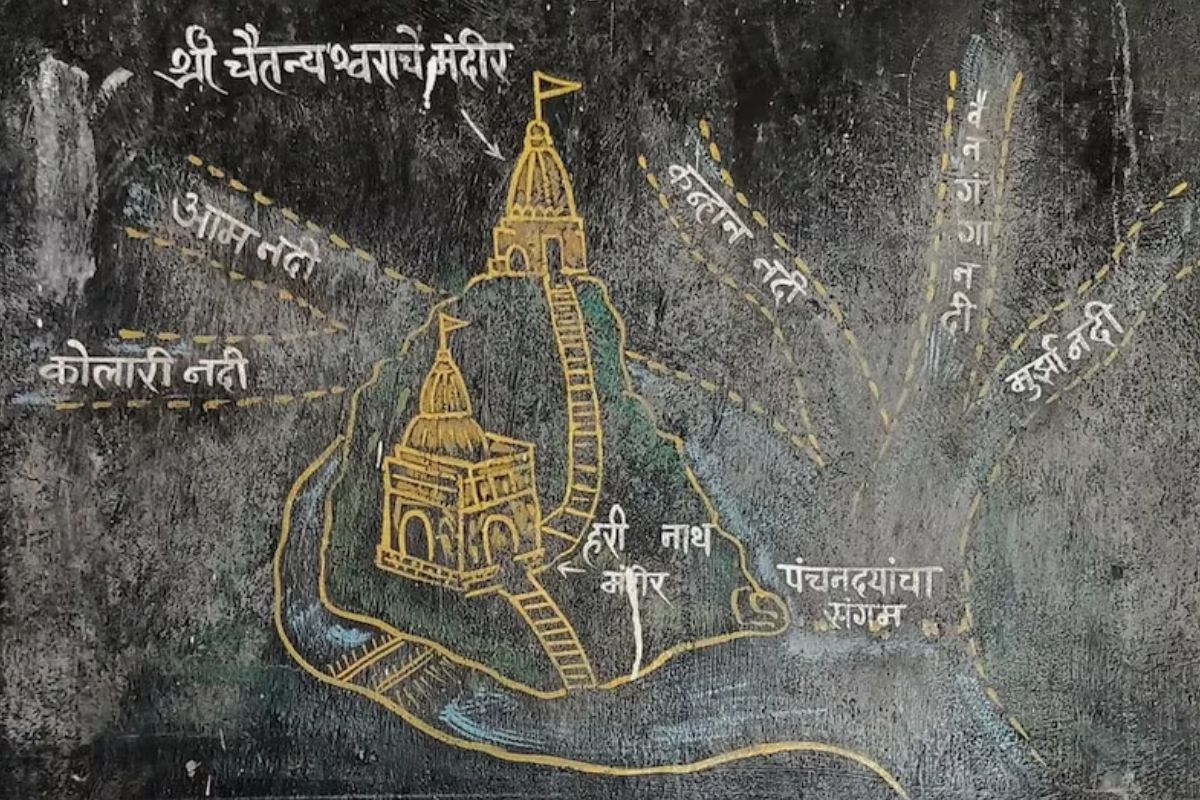 श्री चैतन्येश्वराचे मंदीर
आम नदी
कोलारी नदी
कन्हान नदी
वैनगंगा नदी
मुर्झा नदी
हरी नाथ
मंदीर
पंचनदयांचा
संगम